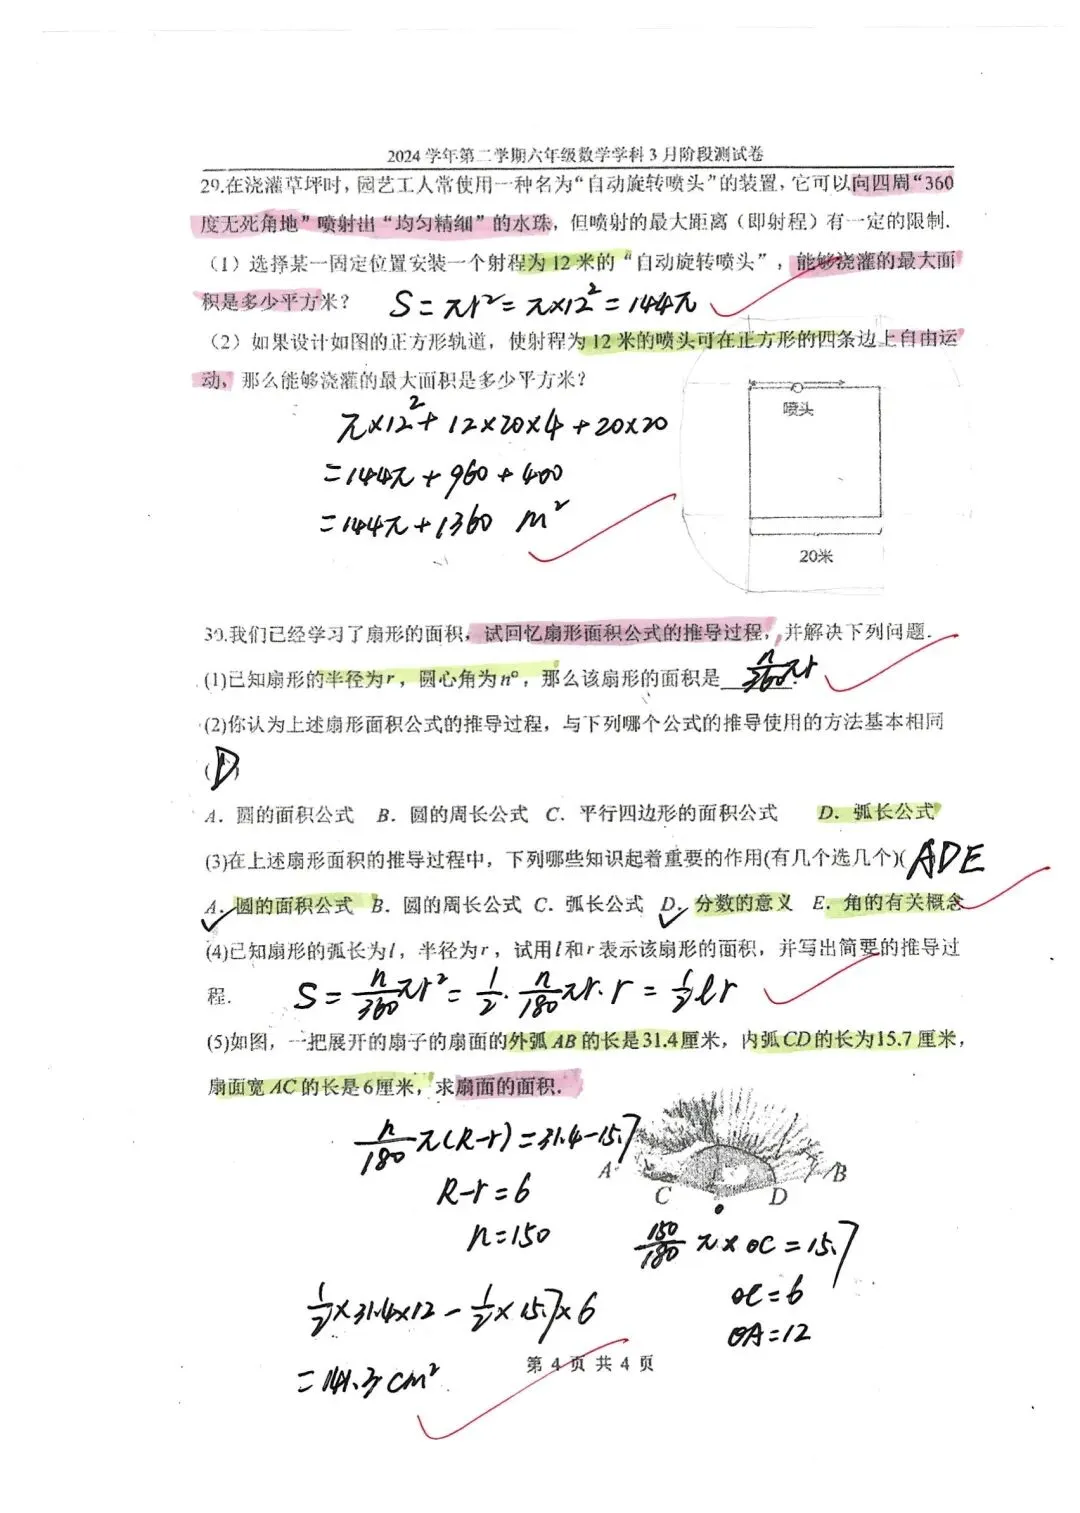 2024 学年第二学期六年级数学学科 3 月阶段测试卷
29.在浇灌草坪时，园艺工人常使用一种名为“自动旋转喷头”的装置，它可以向四周“360
度无死角地”喷射出“均匀精细”的水珠，但喷射的最大距离（即射程）有一定的限制.
（1）选择某一固定位置安装一个射程为 12 米的“自动旋转喷头”，能够浇灌的最大面
积是多少平方米？ S=πr²=π×12²=144π
（2）如果设计如图的正方形轨道，使射程为 12 米的喷头可在正方形的四条边上自由运
动，那么能够浇灌的最大面积是多少平方米？
喷头
π×12²+12×20×4+20×20
=144π+960+400
=144π+1360 m²
20米
30.我们已经学习了扇形的面积，试回忆扇形面积公式的推导过程，并解决下列问题.
(1)已知扇形的半径为r，圆心角为n°，那么该扇形的面积是 n/360 πr
(2)你认为上述扇形面积公式的推导过程，与下列哪个公式的推导使用的方法基本相同
(D)
A. 圆的面积公式 B. 圆的周长公式 C. 平行四边形的面积公式 D. 弧长公式
(3)在上述扇形面积的推导过程中，下列哪些知识起着重要的作用(有几个选几个)( ADE
A. 圆的面积公式 B. 圆的周长公式 C. 弧长公式 D. 分数的意义 E. 角的有关概念
(4)已知扇形的弧长为l，半径为r，试用l和r表示该扇形的面积，并写出简要的推导过
程. S=n/360 πr²=1/2·n/180 πr·r=1/2 lr
(5)如图，一把展开的扇子的扇面的外弧AB的长是31.4厘米，内弧CD的长为15.7厘米，
扇面宽AC的长是6厘米，求扇面的面积.
n/180 π(R-r)=31.4-15.7
R-r=6
n=150
A B
C D
150/180 π×OC=15.7
OC=6
OA=12
1/2×31.4×12-1/2×15.7×6
=141.3 cm²
第 4 页 共 4 页